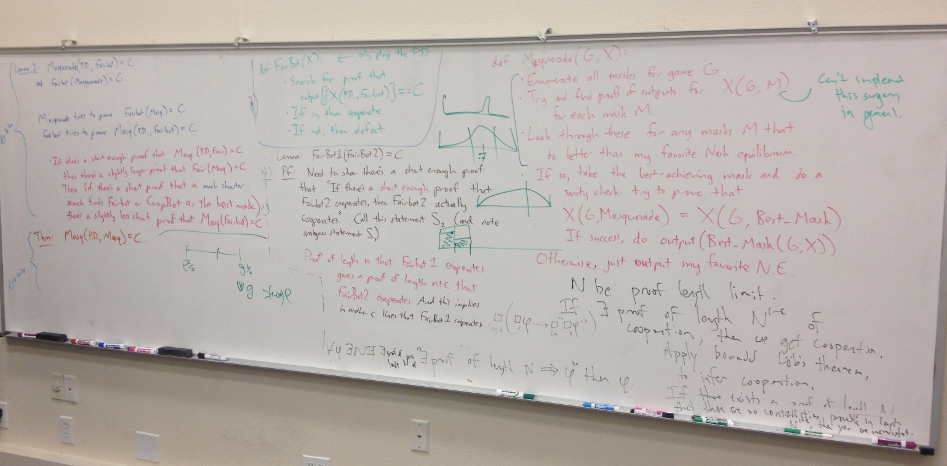 Lemma 2: Masquerade(P.D., Fairbot) = C
and Fairbot(Masquerade) = C
Masquerade tries to prove Fairbot(Masq) = C
Fairbot tries to prove Masq(P.D., Fairbot) = C
• If there's a short enough proof that Masq(P.D., Fair) = C
then there's a slightly longer proof that Fair(Masq) = C
Then (if there's a short proof that a much shorter
search finds Fairbot or CoopBot as the best mask)
there's a slightly less short proof that Masq(Fairbot) = C
Thm: Masq(P.D., Masq) = C
def FairBot(X) ← only plays the P.D.
• Search for proof that
output[X(P.D., Fairbot)] == C
• If so, then cooperate
• If not, then defect
Lemma: FairBot1(FairBot2) = C
Pf: Need to show there's a short enough proof
that "If there's a short enough proof that
Fairbot2 cooperates, then Fairbot2 actually
cooperates" Call this statement S2 (and note
analogous statement S1)
Proof of length n that Fairbot1 cooperates
gives a proof of length n+c that
FairBot2 cooperates And this implies
in another c lines that FairBot2 cooperates
"∃ proof of length N ⇒ φ" then φ.
def Masquerade(G, X):
• Enumerate all masks for game G
• Try and find proofs of outputs for X(G, M)
for each mask M.
• Look through these for any masks M that
do better than my favorite Nash equilibrium.
If so, take the best-achieving mask and do a
sanity check: try to prove that
X(G, Masquerade) = X(G, Best_Mask)
If success, do output(Best_Mask(G, X))
Otherwise, just output my favorite N.E.
Can't implement
this surgery
in general.
N be proof length limit.
If ∃ proof of length N^(1-ε) of
cooperation, then we get cooperation.
Apply bounded Löb's theorem,
to infer cooperation.
If there exists a proof of length N
that there are no contradictions provable in length